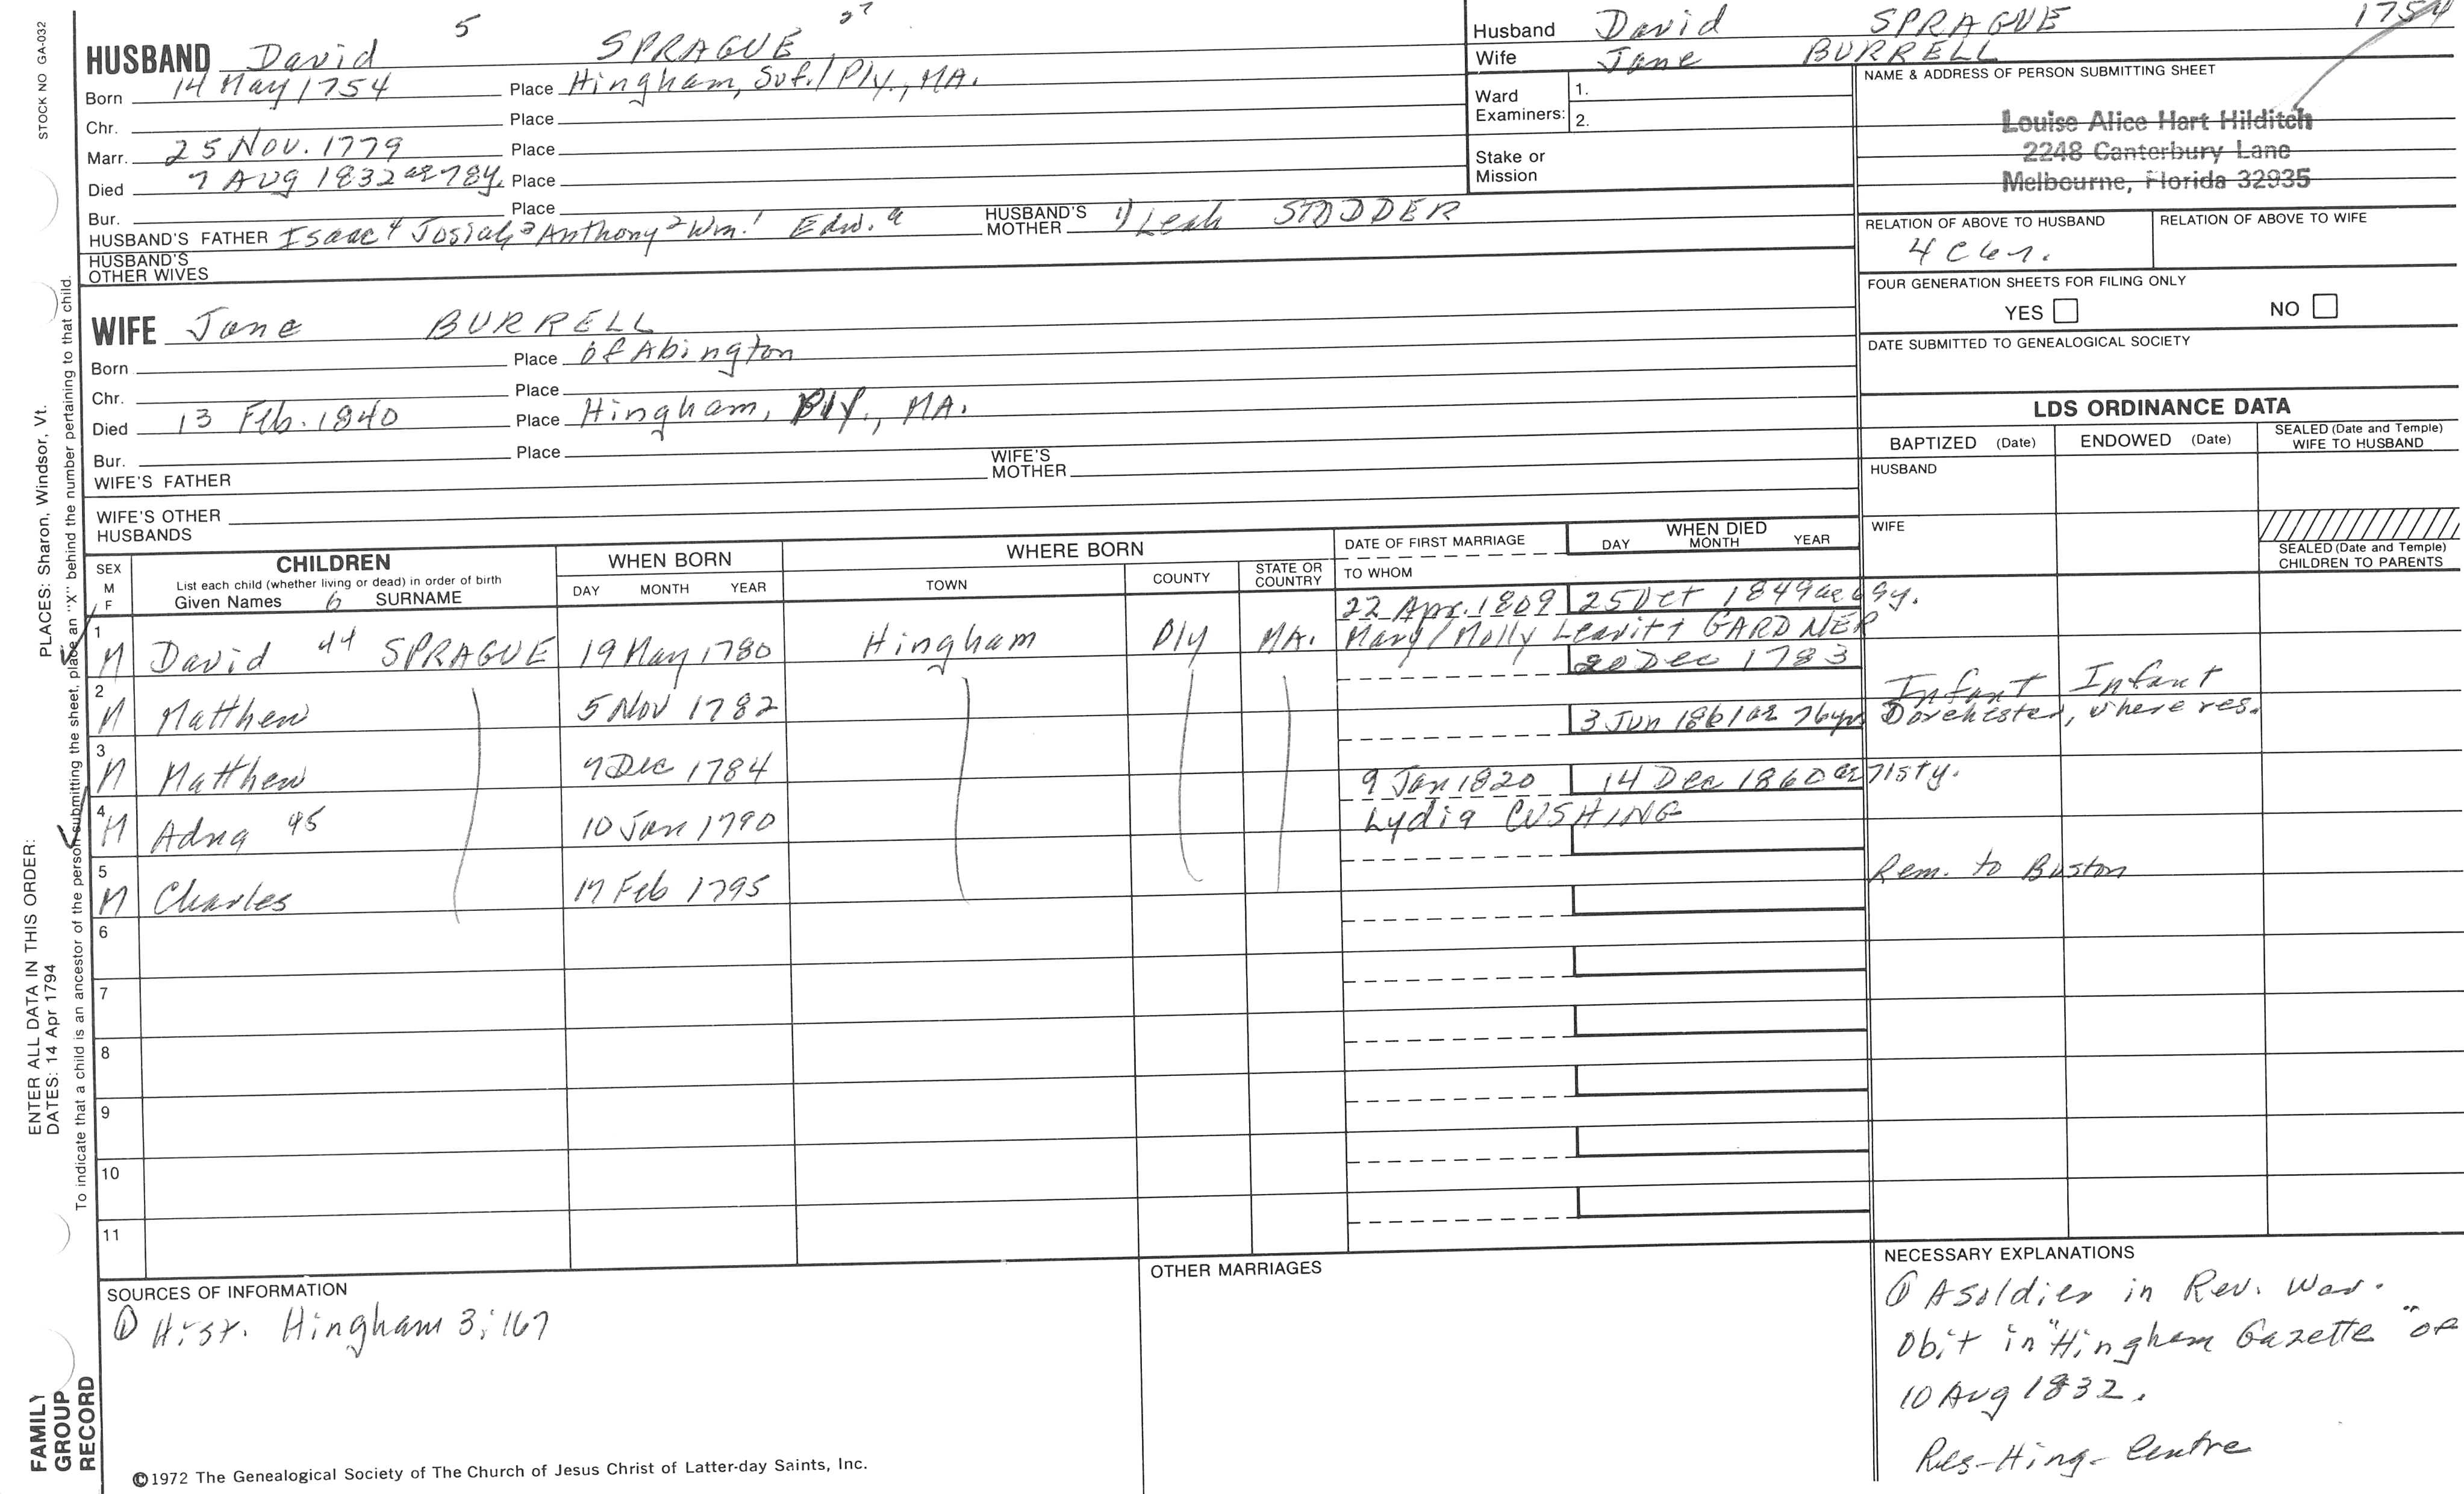 STOCK NO GA-032
5
27
HUSBAND David SPRAGUE
Born 14 May 1754 Place Hingham, Suf./Ply., MA.
Chr. Place
Marr. 25 Nov. 1779 Place
Died 7 AUG 1832 ae 78y. Place
Bur. Place
HUSBAND'S FATHER Isaac 4 Josiah 3 Anthony 2 Wm. 1 Edw. a HUSBAND'S MOTHER 1) Leah STODDER
HUSBAND'S OTHER WIVES
Husband David SPRAGUE 1754
Wife Jane BURRELL
Ward Examiners: 1.
2.
Stake or Mission
NAME & ADDRESS OF PERSON SUBMITTING SHEET
Louise Alice Hart Hilditch
2248 Canterbury Lane
Melbourne, Florida 32935
RELATION OF ABOVE TO HUSBAND RELATION OF ABOVE TO WIFE
4 C 6 r.
FOUR GENERATION SHEETS FOR FILING ONLY
YES NO
DATE SUBMITTED TO GENEALOGICAL SOCIETY
WIFE Jane BURRELL
Born Place of Abington
Chr. Place
Died 13 Feb. 1840 Place Hingham, Ply., MA.
Bur. Place
WIFE'S FATHER WIFE'S MOTHER
WIFE'S OTHER HUSBANDS
LDS ORDINANCE DATA
BAPTIZED (Date) ENDOWED (Date) SEALED (Date and Temple) WIFE TO HUSBAND
HUSBAND
WIFE
SEALED (Date and Temple) CHILDREN TO PARENTS
SEX M F CHILDREN WHEN BORN WHERE BORN DATE OF FIRST MARRIAGE WHEN DIED
List each child (whether living or dead) in order of birth
Given Names 6 SURNAME DAY MONTH YEAR TOWN COUNTY STATE OR COUNTRY TO WHOM DAY MONTH YEAR
22 Apr. 1809 25 Oct 1849 ae 69y.
1 M David 44 SPRAGUE 19 May 1780 Hingham Ply MA. Mary/Molly Leavitt GARDNER
20 Dec 1783
2 M Matthew 5 Nov 1782 Infant Infant
3 Jun 1861 ae 76yrs Dorchester, where res.
3 M Matthew 7 Dec 1784
9 Jan 1820 14 Dec 1860 ae 71sty.
4 M Adna 45 10 Jan 1790 Lydia CUSHING
5 M Charles 17 Feb 1795 Rem. to Boston
6
7
8
9
10
11
SOURCES OF INFORMATION
① Hist. Hingham 3:167
OTHER MARRIAGES
NECESSARY EXPLANATIONS
① A soldier in Rev. War.
Obit in "Hingham Gazette" of
10 Aug 1832.
Res-Hing-Centre
©1972 The Genealogical Society of The Church of Jesus Christ of Latter-day Saints, Inc.
FAMILY GROUP RECORD
ENTER ALL DATA IN THIS ORDER:
DATES: 14 Apr 1794
PLACES: Sharon, Windsor, Vt.
To indicate that a child is an ancestor of the person submitting the sheet, place an "X" behind the number pertaining to that child.